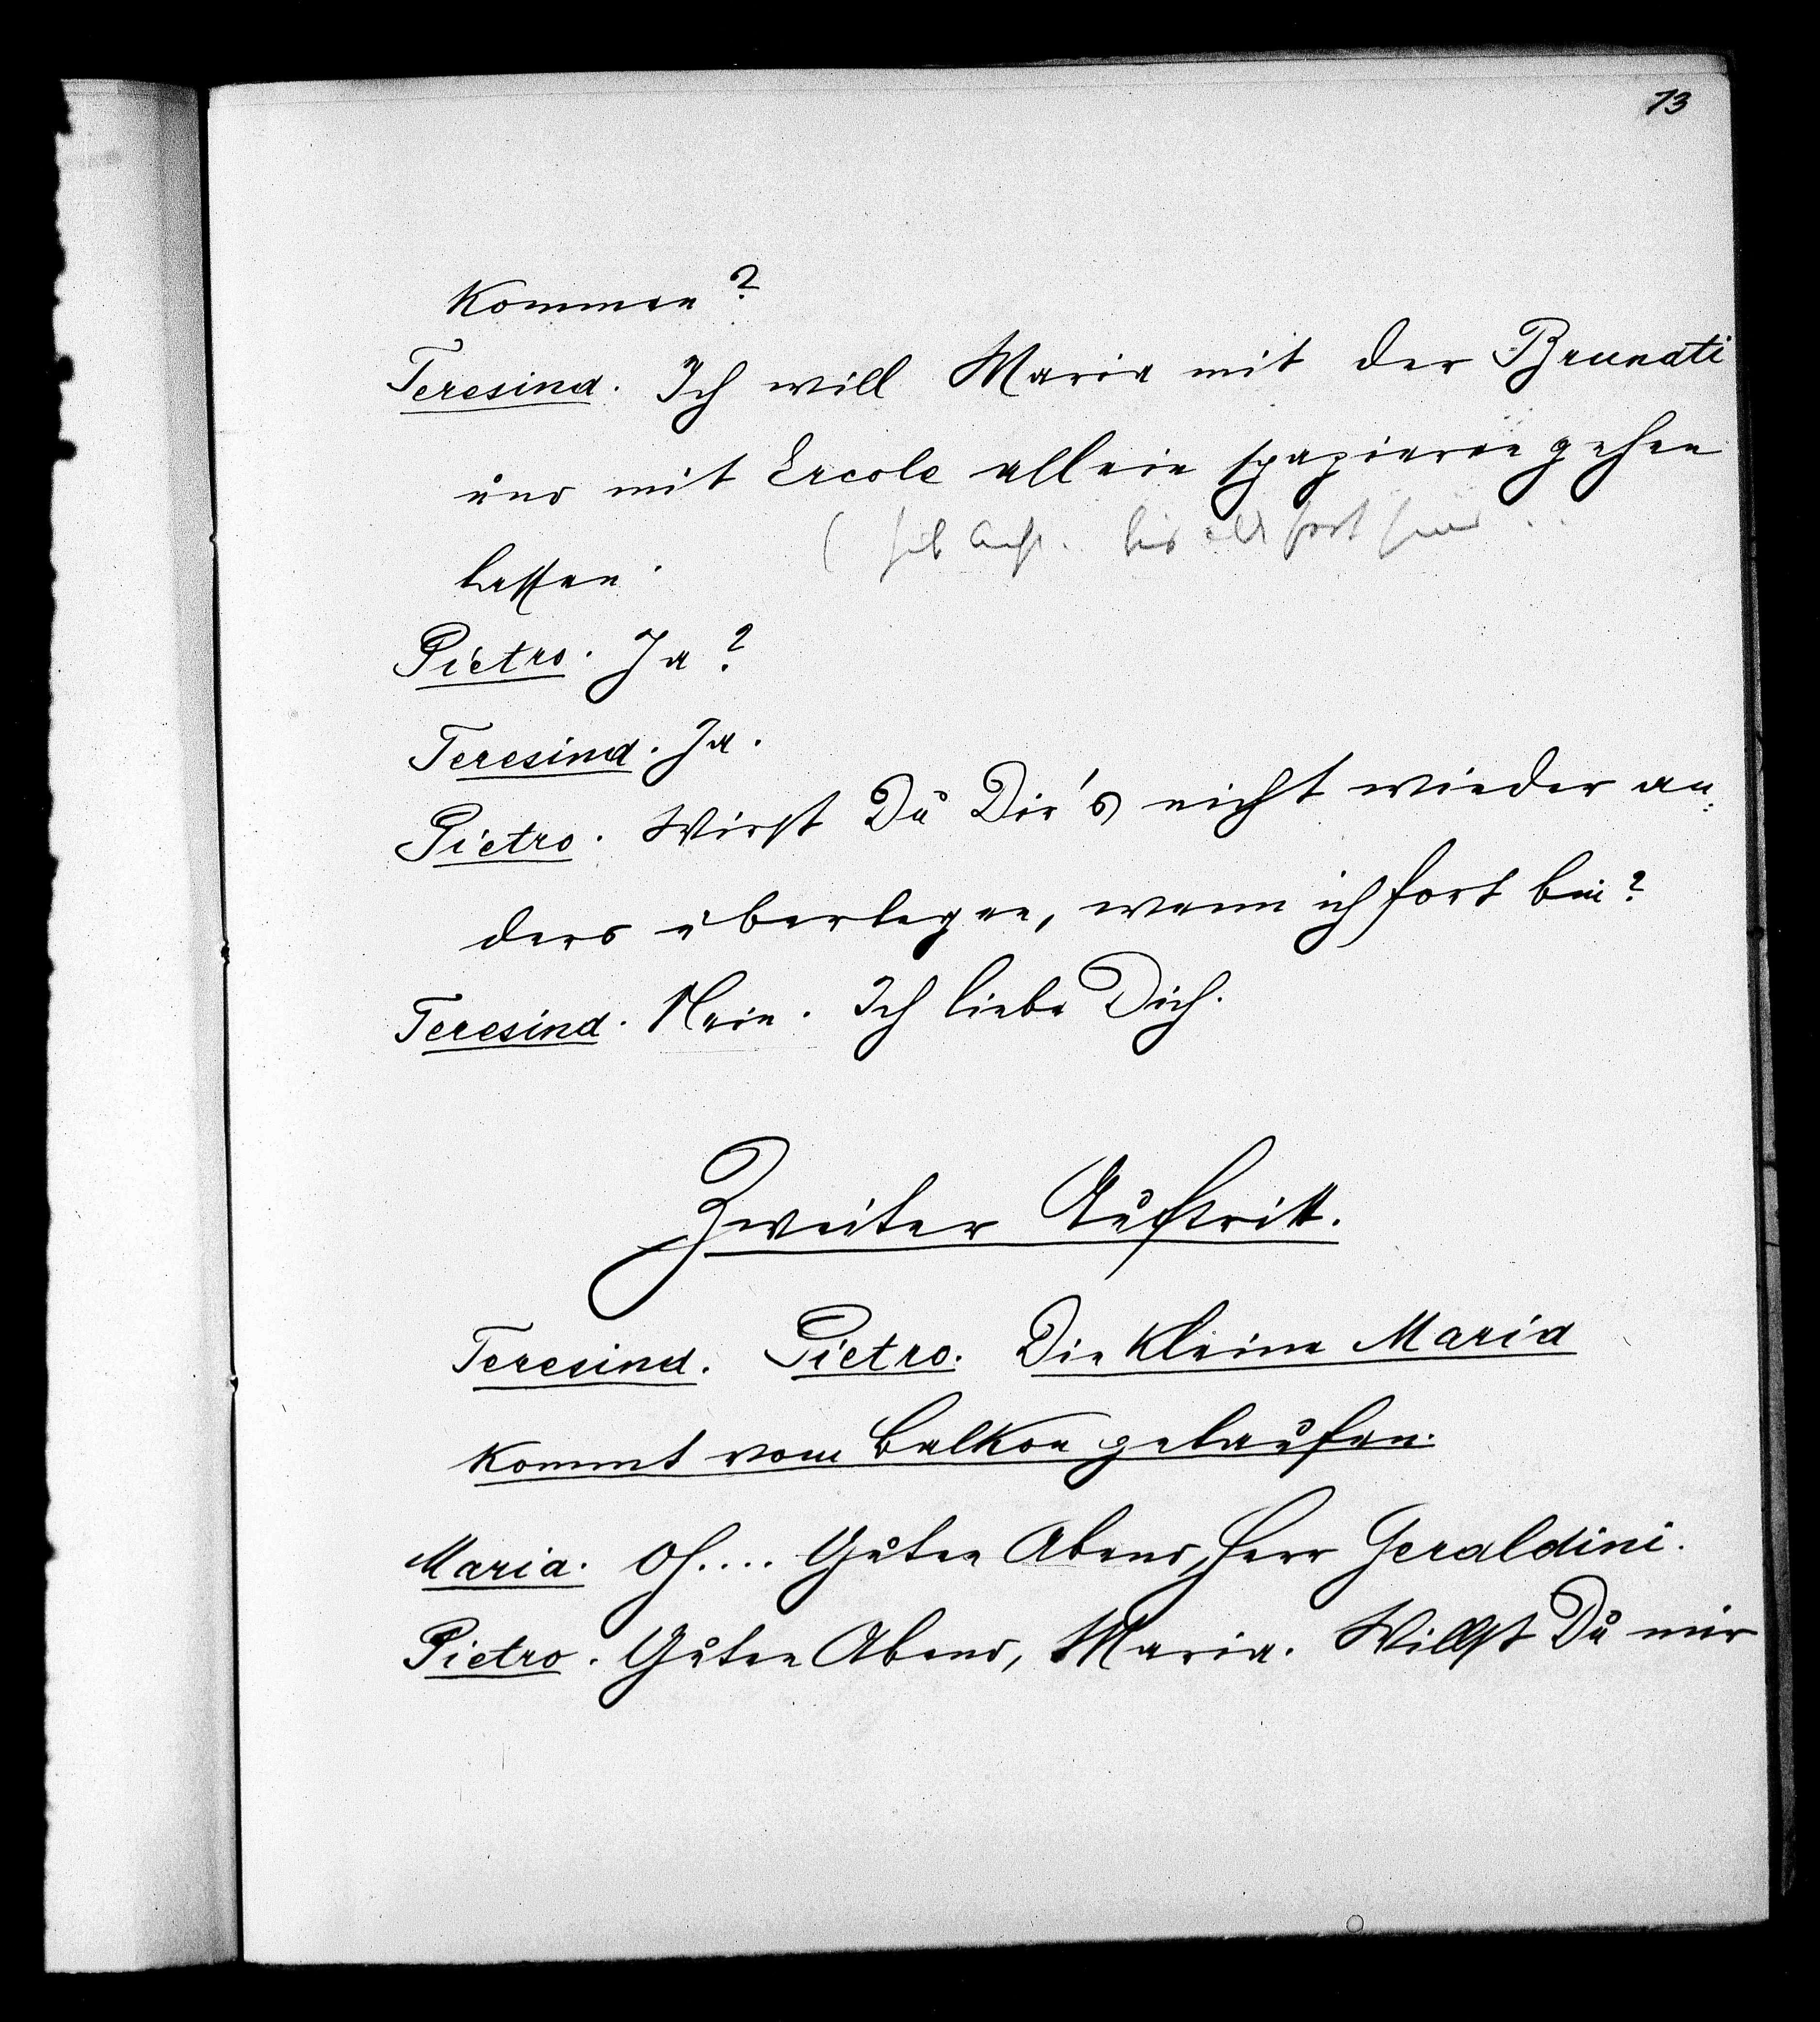 73
kommen?
Teresina. Ich will Maria mit der Brunati
und mit Ercole allein spazieren gehen
bis alle fort sind ..
lassen.
Pietro. Ja?
Teresina. Ja.
Pietro. Wirst Du Dir's nicht wieder an=
ders überlegen, wenn ich fort bin?
Teresina. Nein. Ich liebe Dich.
Zweiter Auftritt.
Teresina. Pietro. Die kleine Maria
kommt vom Balkon gelaufen.
Maria. Oh.... Guten Abend, Herr Geraldini.
Pietro. Guten Abend, Maria. Willst Du mir